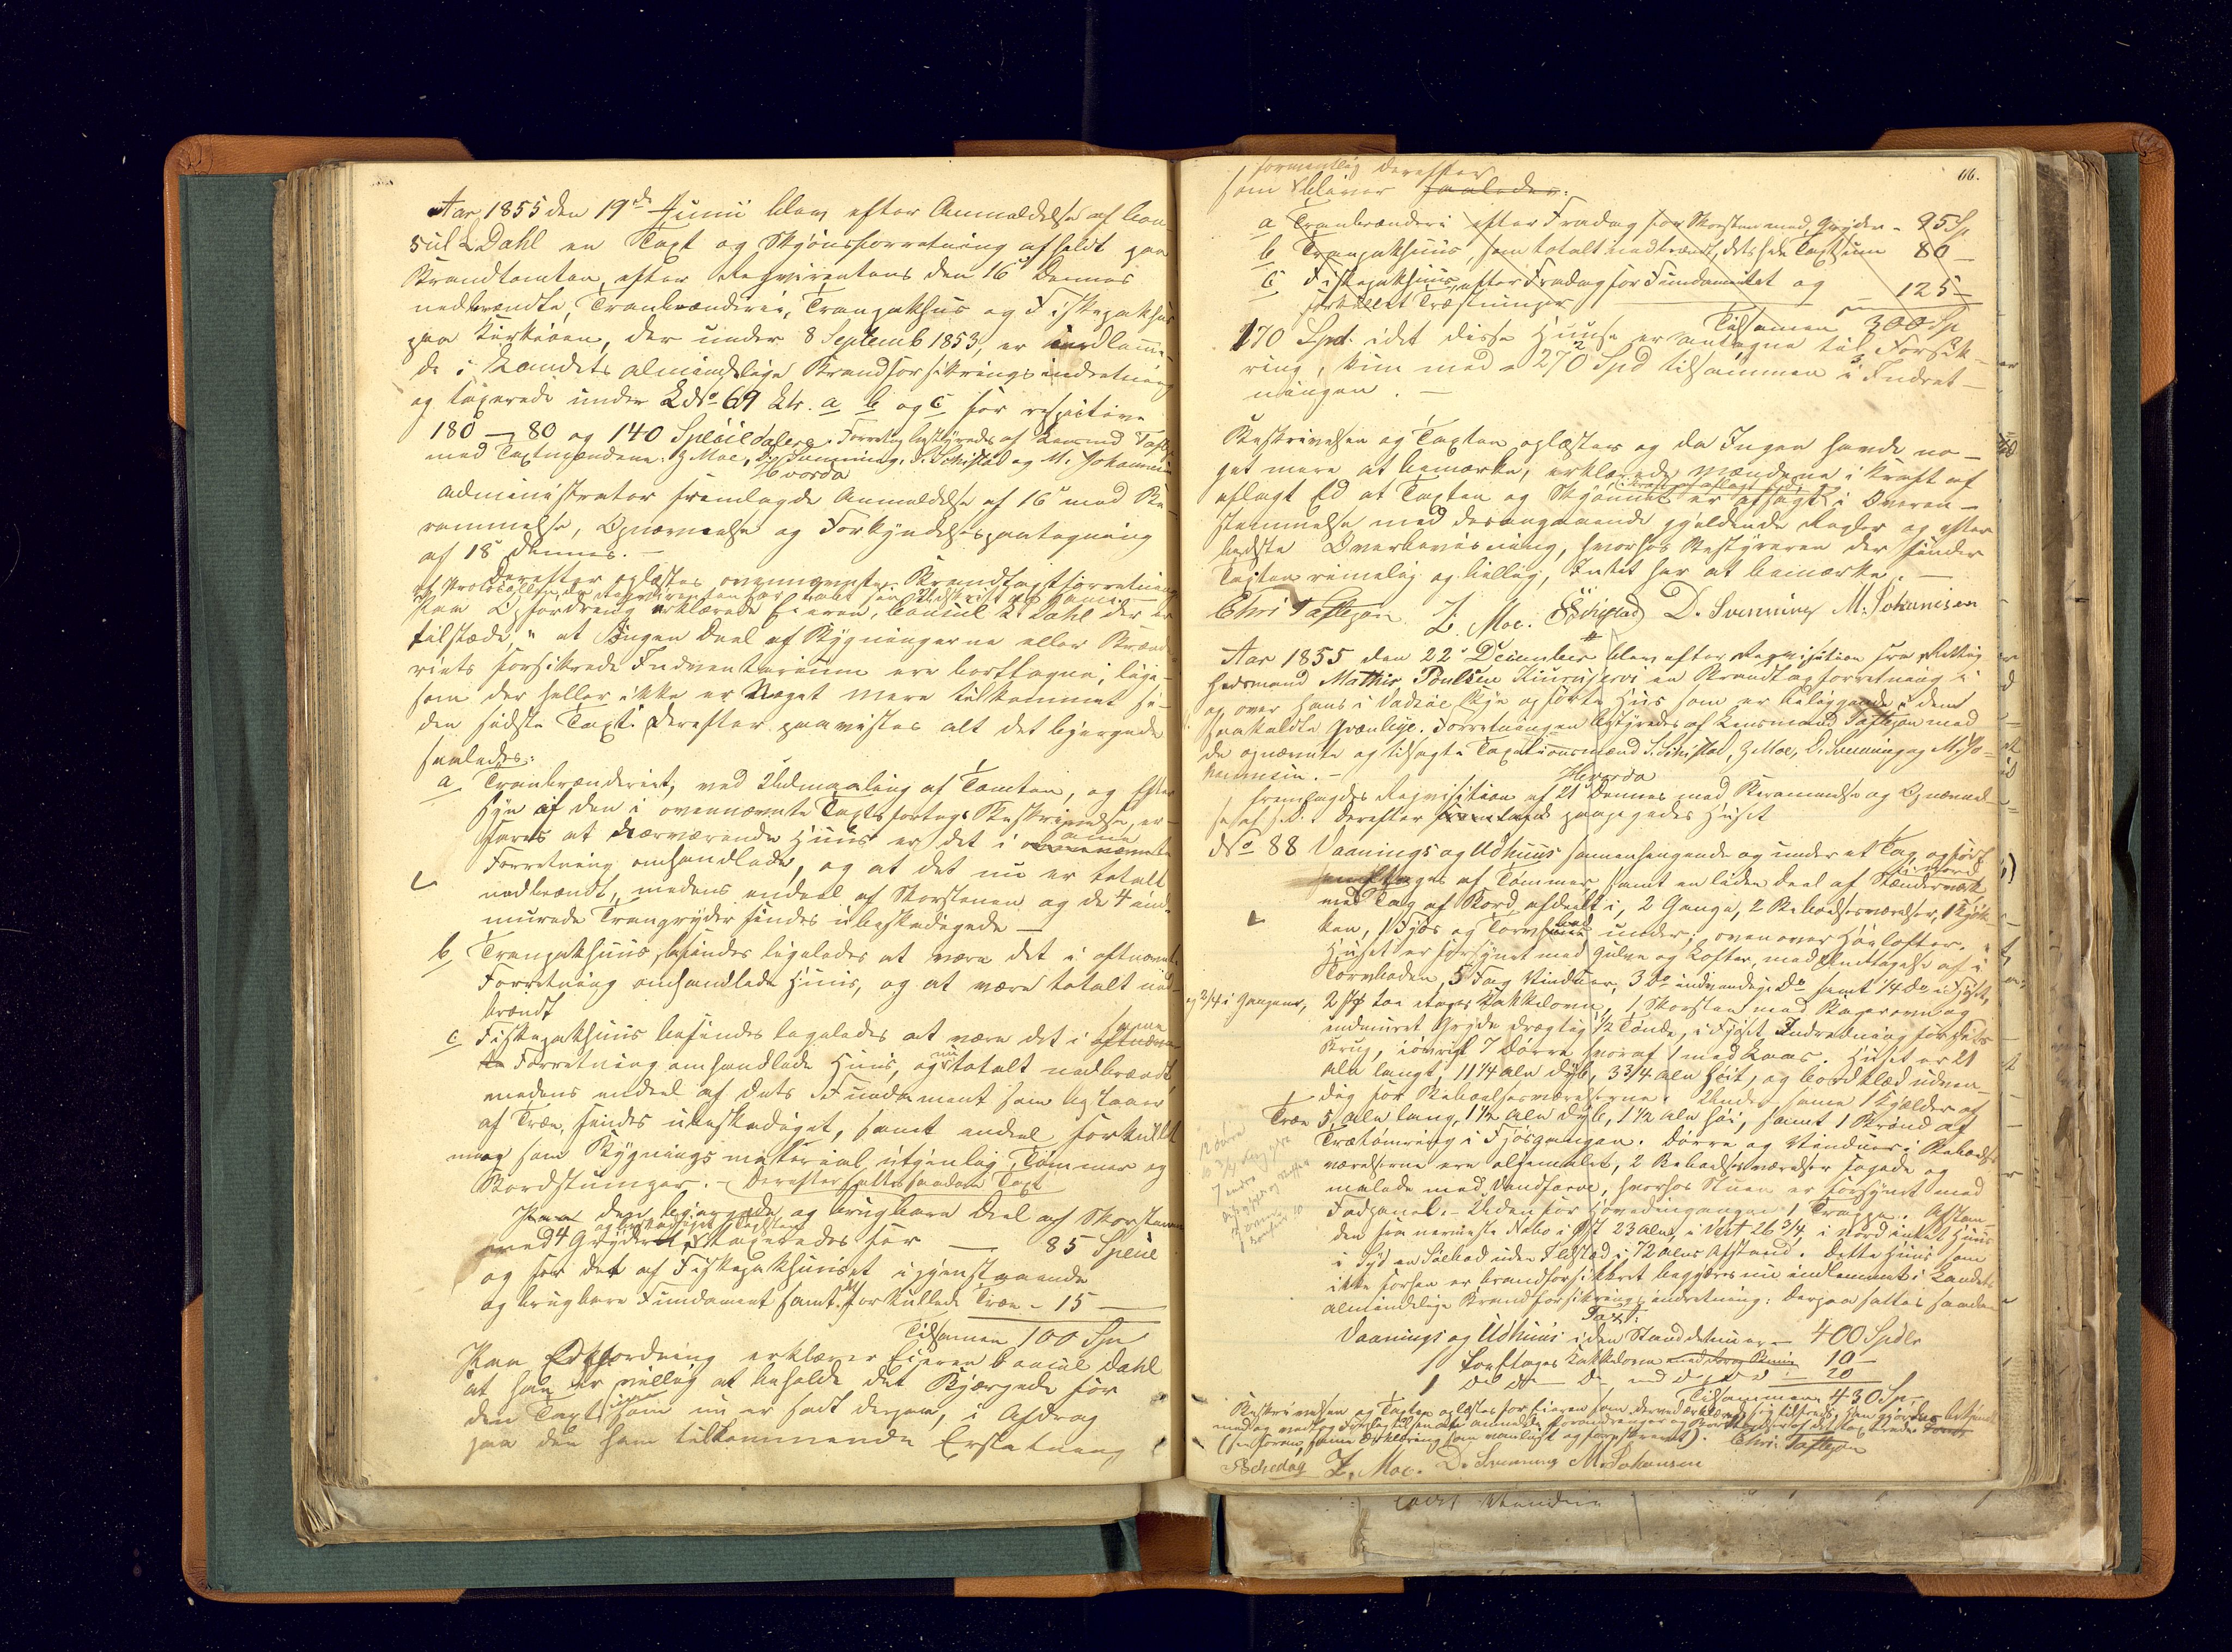 Aar 1855 den 19de Junii blev efter Anmeldelse af Con-
sul L Dahl en Taxt og Skjønsforretning afholdt paa
Brandtomten efter Reqvirentens den 16de Dennes
nedbrændte Tranbrænderie, Tranpakhus og Fiskepakhus
paa Kirkeøen, der under 8 Septemb 1853, er indlemme-
de i Landets almindelige Brandforsikringsindretning
og taxerede under Ldo 69 Ltr. a b og c for respective
180 – 80 og 140 Speciedalere. Forretn bestyredes af Lensmd Taftezon
med Taxtmændene: Z Moe, D. Svenning, S. Schistad og M. Johannesen
Hvorda
administrator fremlagde Anmeldelse af 16de med Be-
rammelse, Opnævnelse og Forkyndelsespaategning
af 18de dennes. –
Derefter oplæstes ovennævnte Brandtaxtforretning
af Protocollen, da Reqvirenten har tabt sin Udskrift af samme
Paa Opfordring erklærede Eieren, Consul L Dahl der er
tilstæde, " at Ingen Deel af Bygningerne eller Brænde
riets forsikrede Indventarium ere borttagne, lige-
som der heller ikke er Noget mere tilkommet si-
den sidste Taxt. Derefter paavistes alt det bjergede
saaledes:
a Tranbrænderiet, ved Udmaaling af Tomten, og Efter
Syn af den i ovennævnte Taxtforretngs Beskrivelse, er-
fares at dæværende Huus er det i ovennævnte samme
Forretning omhandlede, og at det nu er totalt
nedbrændt, medens endeel af Skorstenen og de 4 ind-
murede Trangryder findes ubeskadigede –
b Tranpakhuus, befindes ligeledes at være det i oftnævnte
Forretning omhandlede Huus, og at være totalt ned-
brændt
c Fiskepakhuus befindes lageledes at være det i oftnævn- samme
te Forretning omhandlede Huus, og nu totalt nedbrændt
medens endeel af dets Fundament som bestaaer
af Træ, findes ubeskadiget, samt endeel forkullet
men som Bygningsmaterial utjenlig Tømmer og
Bordstumper. – Derefter sattes saadan Taxt
Paa den bjergede og brugbare Deel af Skorstenen
og beskadiget Teglsteen
med 4 Gryder taxeredes for – 85 Specie
og for det af Fiskepakhuuset igjenstaaende
og brugbare Fundament samt det forkullede Træ – 15 –
Tilsamen 100 Spe
Paa Opfordring erklærer Eieren Consul Dahl
at han er villig at beholde det Bjærgede for
den Taxt som nu er sadt derpaa, i Afdrag
paa den ham tilkommende Erstatning
116.
formentlig derefter
som bliver saaledes:
a Tranbrænderi efter Fradrag for Skorsten med Gryder – 95 Sp
b Tranpakhuus, som totalt nedbrændt, dets hele Taxtsum 80 –
c Fiskepakhuus, efter Fradrag for Fundamentet og
forkullet Træstumper – 125 –
Tilsamen 300 Sp
170 Spd. idet disse Huuse er antagne til Forsik-
ring, kun med 270 Spd tilsammen i Indret-
ningen. –
Beskrivelsen og Taxten oplæstes og da Ingen havde no-
get mere at bemærke, erklærede Mændene i Kraft af
aflagt Ed at Taxten og Skjønnet er afsagt i Overen-
stemmelse med desangaaende gjældende Regler og efter
bedste Overbeviisning, hvorhos Bestyreren der finder
Taxten rimelig og billig, Intet har at bemærke. –
Chri Taftezon Z. Moe. SSchistad D. Svenning M. Johanisen
Aar 1855 den 22de December blev efter Reqvisition fra Rettig
hedsmand Mathis Poulsen Kiurujervi en Brandtaxtforretning i
og over hans i Vadsøe Bye opførte Huus som er beliggende i den
saakaldte Qvænbye. Forretningen bestyredes af Lensmand Taftezon med
de opnævnte og tilsagte Taxationsmænd S. Schistad, Z Moe, D. Svenning og M. Jo-
hannesen. – Hvorda
fremlagdes Reqvisition af 21de Dennes med Berammelse og Opnævnel-
se af s. D. Derefter fremlagde paapegedes Huset
No 88 Vaanings og Udhuus sammenhængende og under et Tag, opført
af Tømmer, samt en liden Deel af Stænderværk
med Tag af Bord, afdeelt i, 2 Gange, 2 Beboelsesværelser, 1 Kjøk-
ken, 1 Fjøs og Torvbod under, ovenover Høelofter.
Huset er forsynet med Gulve og Lofter, med Undtagelse af i
Torvboden, 5 Fag Vinduer, 3 Do indvendige Do samt 14 Do i Fjøset,
og 2/4 i Gangene, 2 stk toe etages Kakkelovne, 1 Skorsten med Bagerovn og
indmuret Gryde drægtig 1/2 Tønde, i Fjøset Indretning for dets
Brug, iøvrigt 7 Dørre hvoraf 1 med Laas. Huset er 21
Aln langt, 11 1/4 Aln dyb, 3 3/4 Aln høit, og bordklæd udven
dig for Beboelsesværelserne. Under samme 1 Kjælder af
Træ 5 Aln lang, 1 1/2 Aln dyb, 1 1/2 Aln høi, samt 1 Brønd af
Trætømring i Fjøsgangen. Dørre og Vinduer i Beboelses
værelserne ere oljemalet, 2 Beboelsesværelser
malede med Vandfarve, hvorhos Stuen er forsynet med
Fodpanel. – Udenfor Hovedindgangen 1 Trappe. Afstan-
den fra nærmeste Nabo i Øst 23 Alen, i Vest 26 3/4, i Nord intet Huus
i Syd en Søebod uden Ildsted i 72 Alens Afstand. Dette Huus som
ikke forhen er brandforsikkret begjæres nu indlemmet i Landets
almindelige Brandforsikringsindretning: Derpaa sattes saadan
Taxt:
Vaanings og Udhuus i den Stand det nu er – 400 Spdlr
1 Toetages Kakkelovn 10 –
1 Do Do – 20
Tilsammen 430 Sp.
Beskrivelsen og Taxten oplæstes for Eieren som derved erklærede sig tilfreds. Han gjordes bekjendt
Chri. Taftezon
SSchistad Z. Moe. D. Svenning M. Johansen